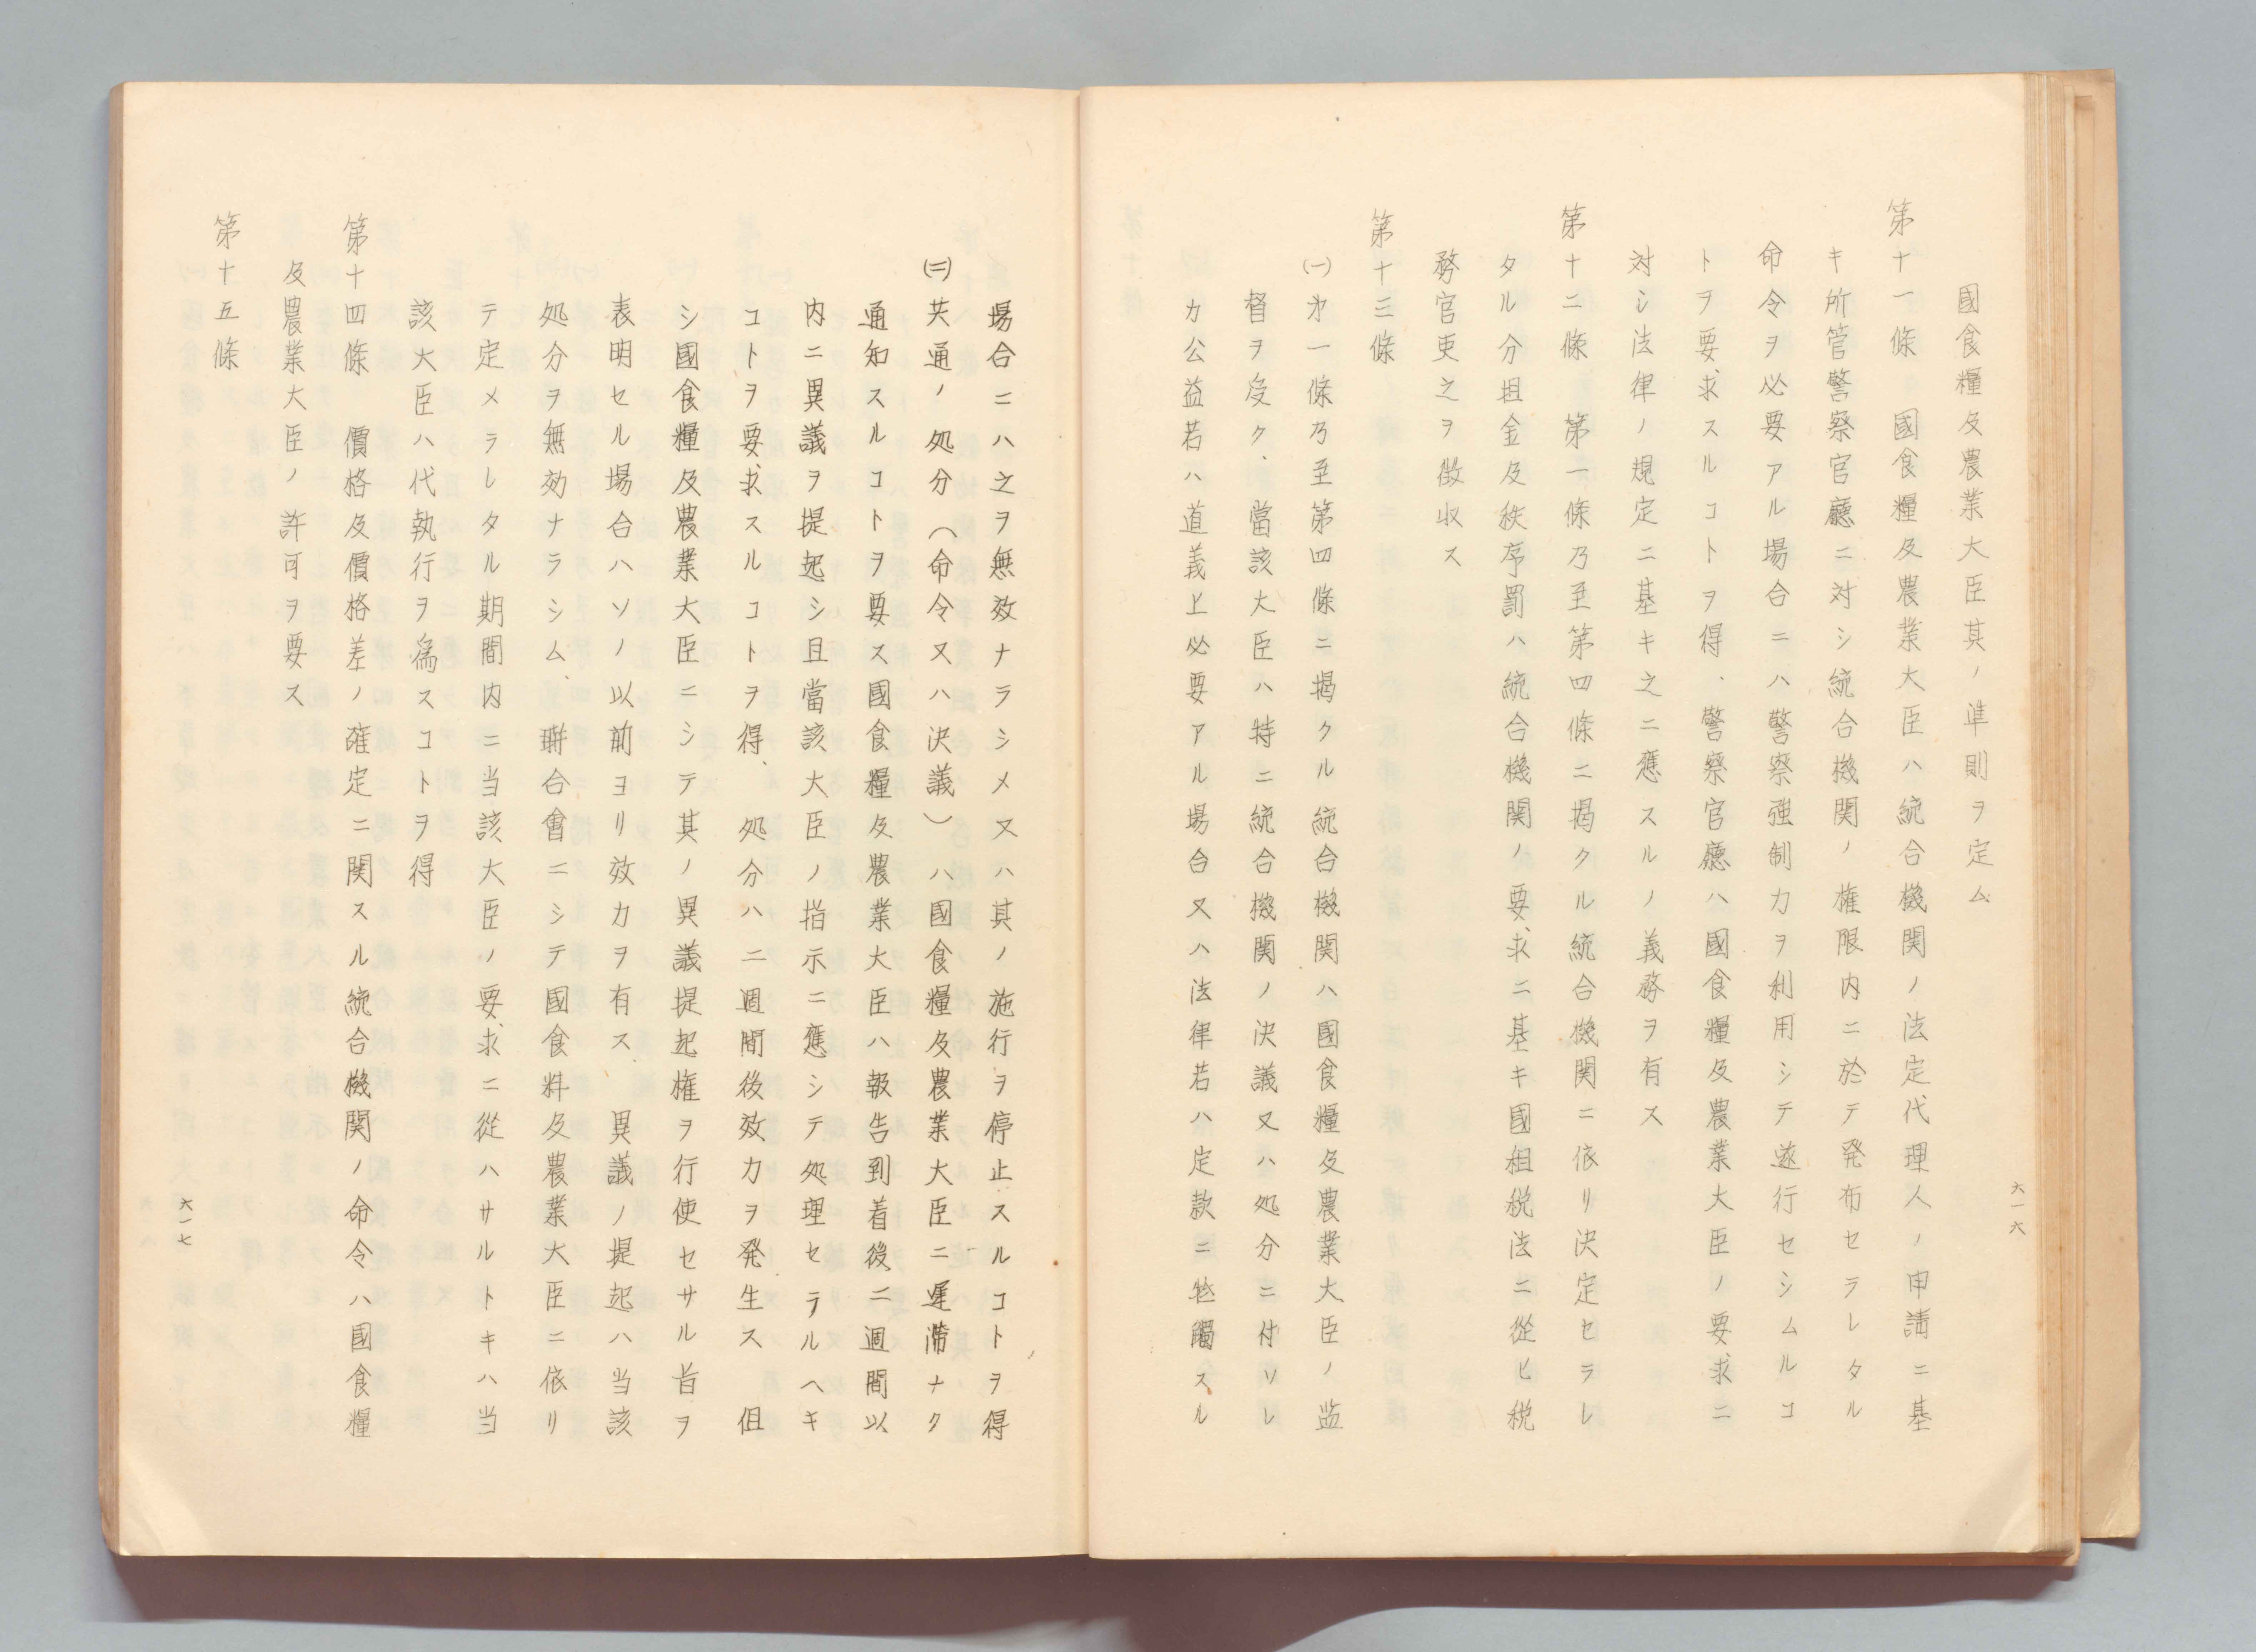 國食糧及農業大臣其ノ準則ヲ定ム
第十一條　國食糧及農業大臣ハ統合機関ノ法定代理人ノ申請ニ基
キ所管警察官廳ニ対シ統合機関ノ権限内ニ於テ発布セラレタル
命令ヲ必要アル場合ニハ警察強制力ヲ利用シテ遂行セシムルコ
トヲ要求スルコトヲ得、警察官廳ハ國食糧及農業大臣ノ要求ニ
対シ法律ノ規定ニ基キ之ニ應スルノ義務ヲ有ス
第十二條　第一條乃至第四條ニ掲クル統合機関ニ依リ決定セラレ
タル分担金及秩序罰ハ統合機関ノ要求ニ基キ國租税法ニ從ヒ税
務官吏之ヲ徴収ス
第十三條
㈠才一條乃至第四條ニ掲クル統合機関ハ國食糧及農業大臣ノ监
督ヲ受ク、當該大臣ハ特ニ統合機関ノ決議又ハ処分ニ付ソレ
カ公益若ハ道義上必要アル場合又ハ法律若ハ定款ニ牴觸スル
六一六
場合ニハ之ヲ無效ナラシメ又ハ其ノ施行ヲ停止スルコトヲ得
㈡共通ノ処分（命令又ハ決議）ハ國食糧及農業大臣ニ遅滞ナク
通知スルコトヲ要ス國食糧及農業大臣ハ報告到着後二週間以
内ニ異議ヲ提起シ且當該大臣ノ指示ニ應シテ処理セラルヘキ
コトヲ要求スルコトヲ得、処分ハ二週間後效力ヲ発生ス　但
シ國食糧及農業大臣ニシテ其ノ異議提起権ヲ行使セサル旨ヲ
表明セル場合ハソノ以前ヨリ效力ヲ有ス　異議ノ提起ハ当該
処分ヲ無効ナラシム、聨合會ニシテ國食料及農業大臣ニ依リ
テ定メラレタル期間内ニ当該大臣ノ要求ニ從ハサルトキハ当
該大臣ハ代執行ヲ爲スコトヲ得
第十四條　價格及價格差ノ確定ニ関スル統合機関ノ命令ハ國食糧
及農業大臣ノ許可ヲ要ス
第十五條
六一七